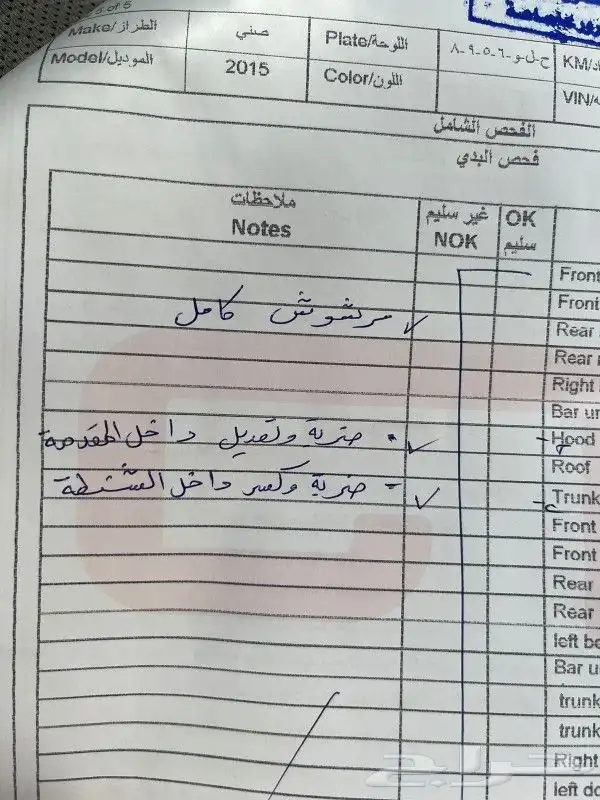 of 5
Make/الطراز صني Plate/اللوحة ح-ل-و-٦-٥-٩-٨ KM/
Model/الموديل 2015 Color/اللون VIN/
الفحص الشامل
فحص البدي
ملاحظات غير سليم OK
Notes NOK سليم
Front
Front
مرشوش كامل Rear
Rear
Right
Bar
ضربة وتعديل داخل المقدمة Hood
Roof
ضربة وكسر داخل الشنطة Trunk
Front
Front
Rear
Rear
left
Bar
trunk
trunk
Right
left